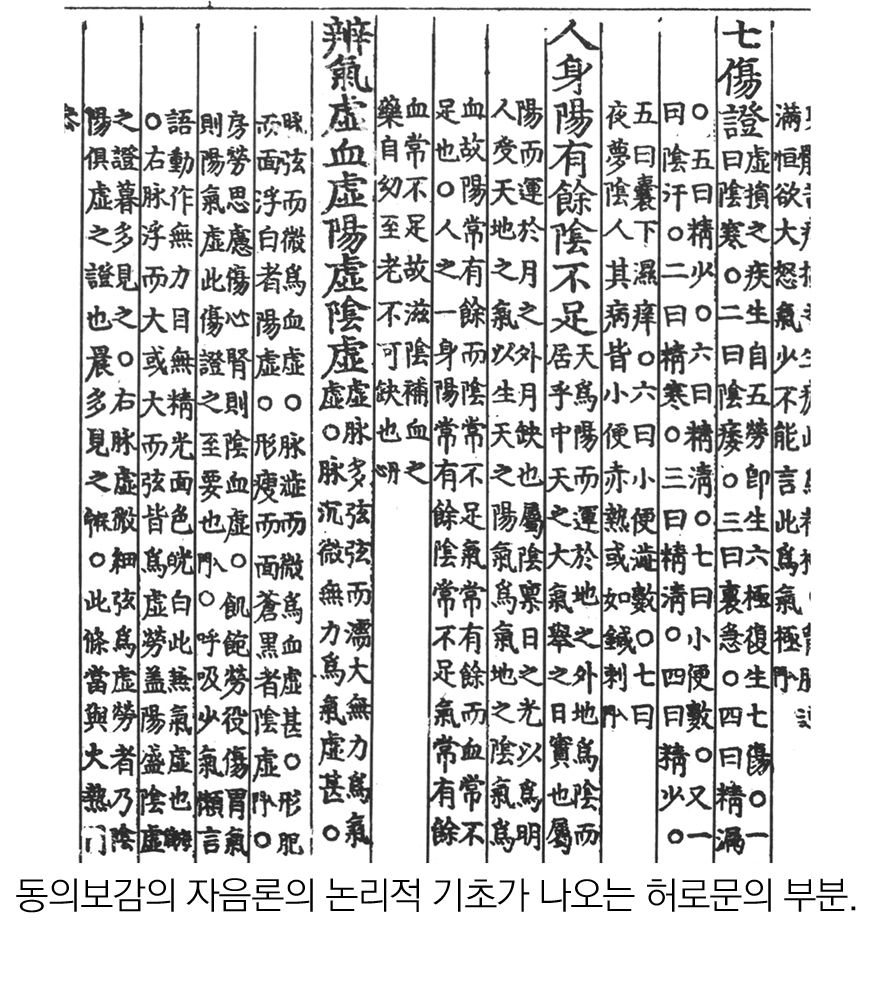 滿恒欲大怒氣少不能言此爲氣極
七傷證虛損之疾生自五勞卽生六極復生七傷○一
曰陰寒○二曰陰痿○三曰裏急○四曰精漏
○五曰精少○六曰精淸○七曰小便數○又一
曰陰汗○二曰精寒○三曰精淸○四曰精少○
五曰囊下濕痒○六曰小便澁數○七曰
夜夢陰人其病皆小便赤熱或如鍼刺入門
人身陽有餘陰不足天爲陽而運於地之外地爲陰而
居乎中天之大氣擧之日實也屬
陽而運於月之外月缺也屬陰稟日之光以爲明
人受天地之氣以生天之陽氣爲氣地之陰氣爲
血故陽常有餘而陰常不足氣常有餘而血常不
足也○人之一身陽常有餘陰常不足氣常有餘
血常不足故滋陰補血之
藥自幼至老不可缺也丹心
辨氣虛血虛陽虛陰虛虛脉多弦弦而濡大無力爲氣
虛○脉沉微無力爲氣虛甚○
脉弦而微爲血虛○脉澁而微爲血虛甚○形肥
而面浮白者陽虛○形瘦而面蒼黑者陰虛入門○
房勞思慮傷心腎則陰血虛○飢飽勞役傷胃氣
則陽氣虛此傷證之至要也入門○呼吸少氣懶言
語動作無力目無精光面色㿠白此兼氣虛也
○右脉浮而大或大而弦皆爲虛勞盖陽盛陰虛
之證暮多見之○右脉虛微細弦爲虛勞者乃陰
陽俱虛之證也晨多見之○此條當與大熱門
동의보감의 자음론의 논리적 기초가 나오는 허로문의 부분.